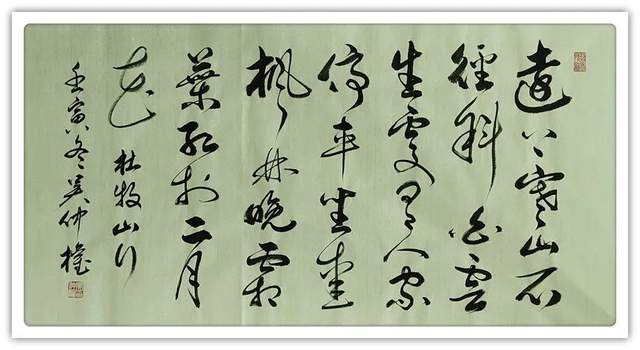 遠上寒山石
徑斜白雲
生處有人家
停車坐愛
楓林晚霜
葉紅於二月
花 杜牧山行
壬寅冬吴仲